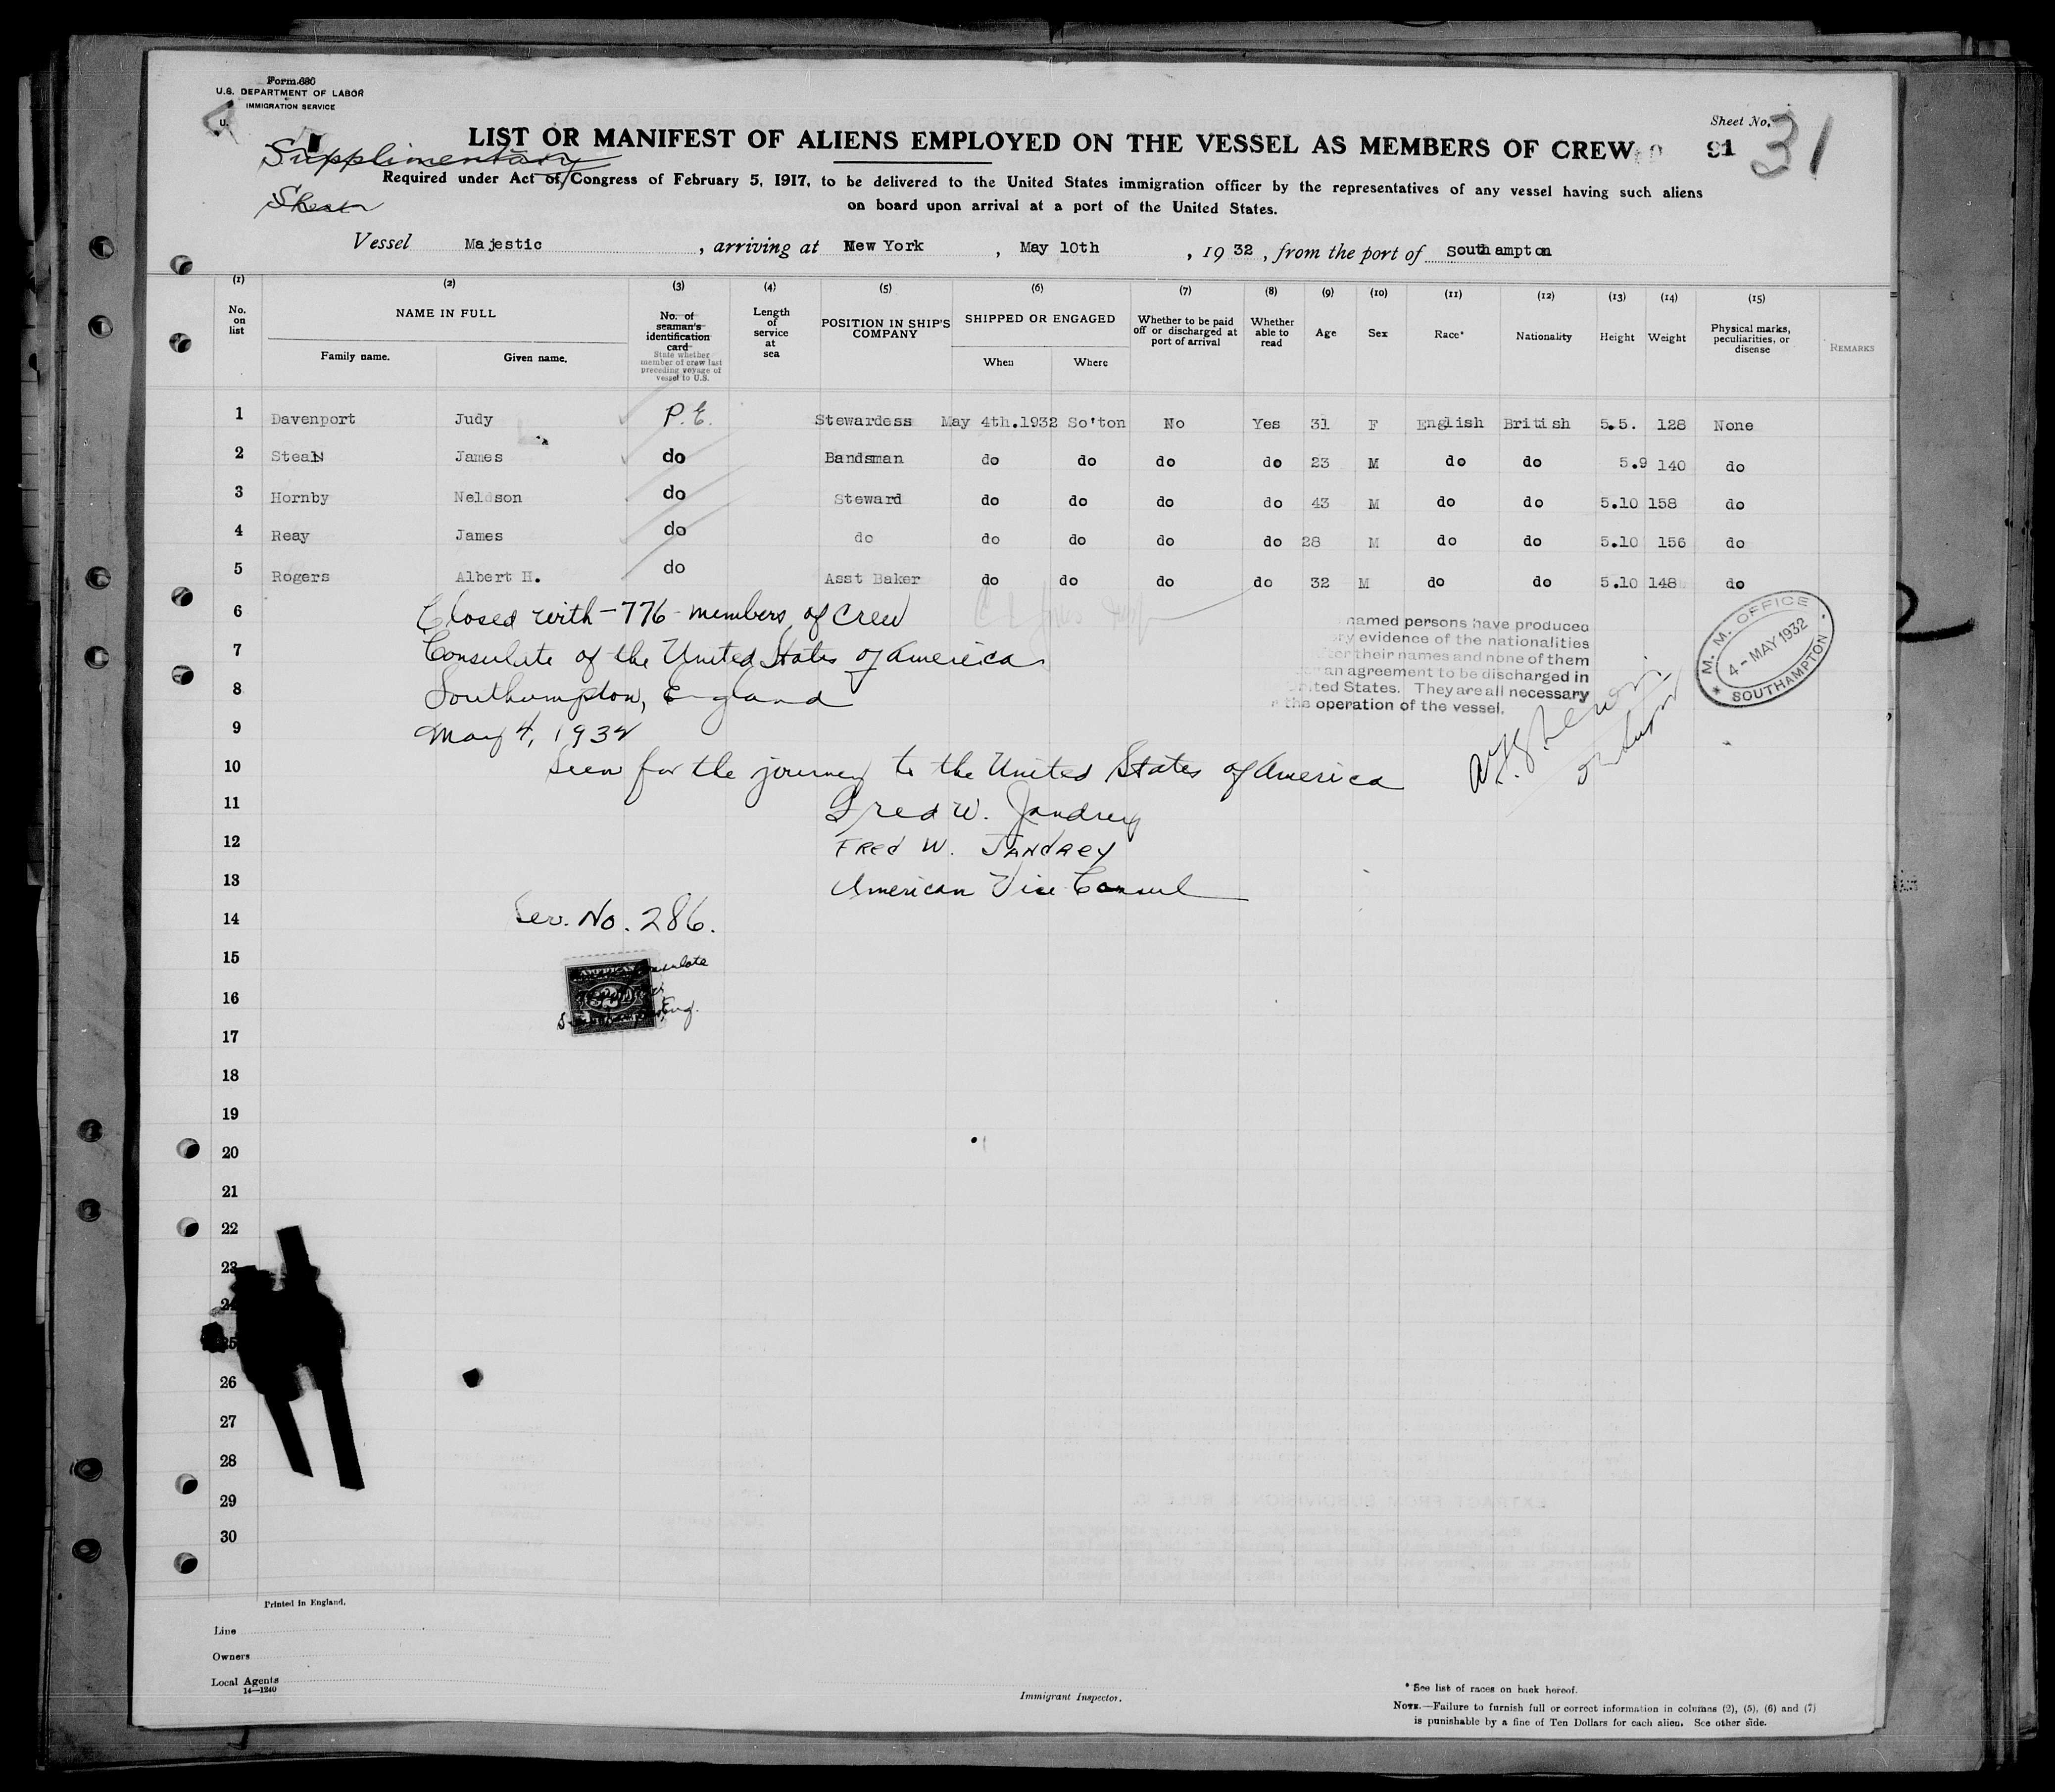 Form 680
U.S. DEPARTMENT OF LABOR
IMMIGRATION SERVICE
Supplimentary
Sheet
LIST OR MANIFEST OF ALIENS EMPLOYED ON THE VESSEL AS MEMBERS OF CREW
Sheet No. 31
91
Required under Act of Congress of February 5, 1917, to be delivered to the United States immigration officer by the representatives of any vessel having such aliens
on board upon arrival at a port of the United States.
Vessel Majestic, arriving at New York, May 10th, 1932, from the port of Southampton
(1) (2) (3) (4) (5) (6) (7) (8) (9) (10) (11) (12) (13) (14) (15)
No. on list
NAME IN FULL
Family name. Given name.
No. of seaman's identification card
State whether member of crew last preceding voyage of vessel to U.S.
Length of service at sea
POSITION IN SHIP'S COMPANY
SHIPPED OR ENGAGED
When Where
Whether to be paid off or discharged at port of arrival
Whether able to read
Age
Sex
Race*
Nationality
Height
Weight
Physical marks, peculiarities, or disease
REMARKS
1 Davenport Judy P.E. Stewardess May 4th.1932 So'ton No Yes 31 F English British 5.5. 128 None
2 Stean James do Bandsman do do do do 23 M do do 5.9 140 do
3 Hornby Neldson do Steward do do do do 43 M do do 5.10 158 do
4 Reay James do do do do do do 28 M do do 5.10 156 do
5 Rogers Albert H. do Asst Baker do do do do 32 M do do 5.10 148 do
6 Closed with -776- members of crew
7 Consulate of the United States of America
8 Southampton, England
9 May 4, 1932
10 Seen for the journey to the United States of America
11 Fred W. Jandrey
12 FRED W. JANDREY
13 American Vice Consul
14 Ser. No. 286.
15
16
17
18
19
20
21
22
23
24
25
26
27
28
29
30
named persons have produced
evidence of the nationalities
their names and none of them
an agreement to be discharged in
United States. They are all necessary
the operation of the vessel.
M. M. OFFICE
4 - MAY 1932
SOUTHAMPTON
AMERICAN
Consulate
Eng.
Printed in England.
Line
Owners
Local Agents
14—1240
Immigrant Inspector.
* See list of races on back hereof.
NOTE.—Failure to furnish full or correct information in columns (2), (5), (6) and (7)
is punishable by a fine of Ten Dollars for each alien. See other side.